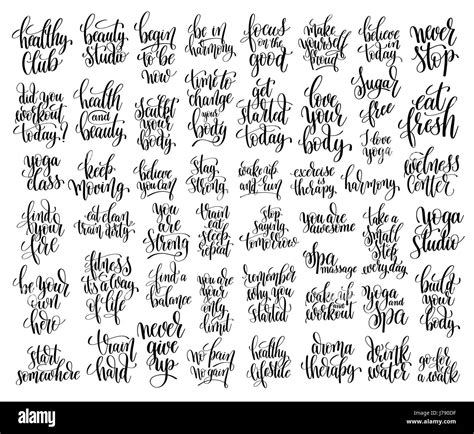 healthy
Club
beauty
Studio
begin
to be
now
be in
harmony
focus
on the
good
make
yourself
proud
believe
in
today
never
stop
did you
workout
today?
health
and
beauty
sculpt
your
body
time to
change
your
body
get
started
today
love
your
body
Sugar
free
I love
yoga
eat
fresh
yoga
class
keep
moving
believe
you can
stay
strong
wake up
and run
exercise
therapy
harmony
wellness
center
find
your
fire
eat clean
train dirty
you
are
strong
train
eat
sleep
repeat
stop
saying
tomorrow
you are
awesome
take a
small
step
everyday
yoga
studio
be your
own
hero
fitness
it's a way
of life
find a
balance
you are
your
only
limit
remember
why you
started
Spa
massage
wake up
and
workout
yoga
and
spa
build
your
body
start
somewhere
train
hard
never
give
up
no pain
no gain
healthy
lifestile
aroma
therapy
drink
water
go for
a walk
alamy
Image ID: J790DF
www.alamy.com